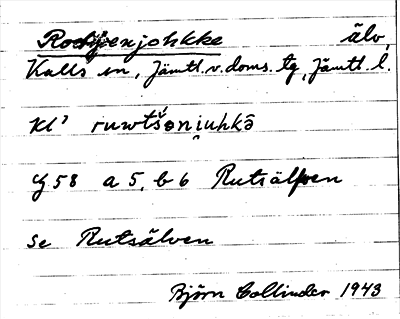 älv,
Kalls sn, Jämtl. v. doms. tg, Jämtl. l.
Kl'
G 58 a 5, b 6 Rutsälven
Se Rutsälven
Björn Collinder 1943